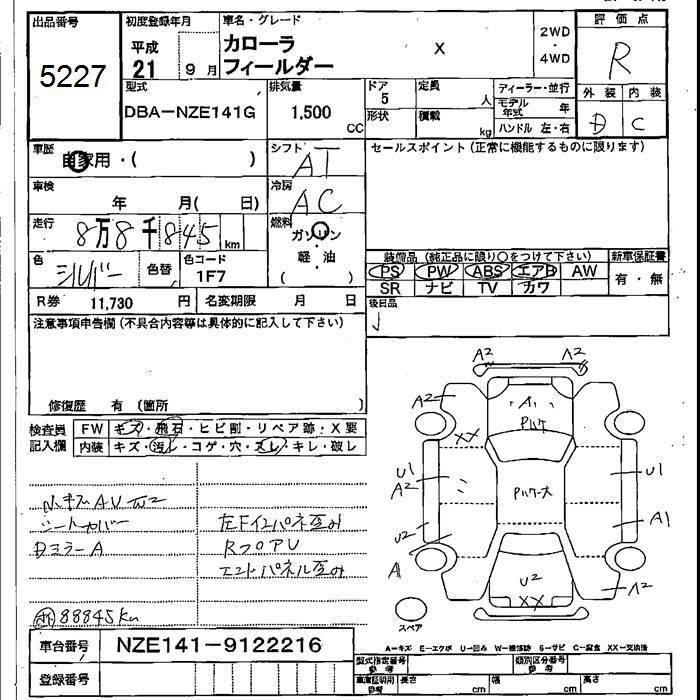 出品番号 初度登録年月 車名・グレード 評価点
5227 平成 21 9月 カローラ フィールダー X 2WD・4WD R
型式 排気量 ドア 定員 ディーラー・並行 外装 内装
DBA-NZE141G 1,500 CC 5 人 モデル年式 年 D C
形状 積載 kg ハンドル 左・右
車歴 自家用・( ) シフト AT セールスポイント (正常に機能するものに限ります)
車検 年 月( 日) 冷房 AC
走行 8万8千845 km 燃料 ガソリン
軽・油
( )
色 シルバー 色替 色コード 1F7
装備品 (純正品に限り○をつけて下さい) 新車保証書
PS PW ABS エアB AW 有・無
SR ナビ TV カワ
R券 11,730 円 名変期限 月 日 後日品
注意事項申告欄 (不具合内容等は具体的に記入して下さい)
修復歴 有 (箇所 )
検査員 記入欄 FW キズ・飛石・ヒビ割・リペア跡・X要
内装 キズ・汚レ・コゲ・穴・スレ・キレ・破レ
A2 A2
A2 A1
XX
U1 A2 U1
U2 A1
A1 A2
U2
XX
スペア
小キズAU
シートカバー 左Fインパネ歪み
DミラーA RフロアU
エンドパネル歪み
88845km
A-キズ E-エクボ U-凹み W-補修跡 S-サビ C-腐食 XX-交換済
車台番号 NZE141-9122216
登録番号
型式指定番号 参考 類別区分番号 参考
車庫証明用 参考 長さ cm 幅 cm 高さ cm